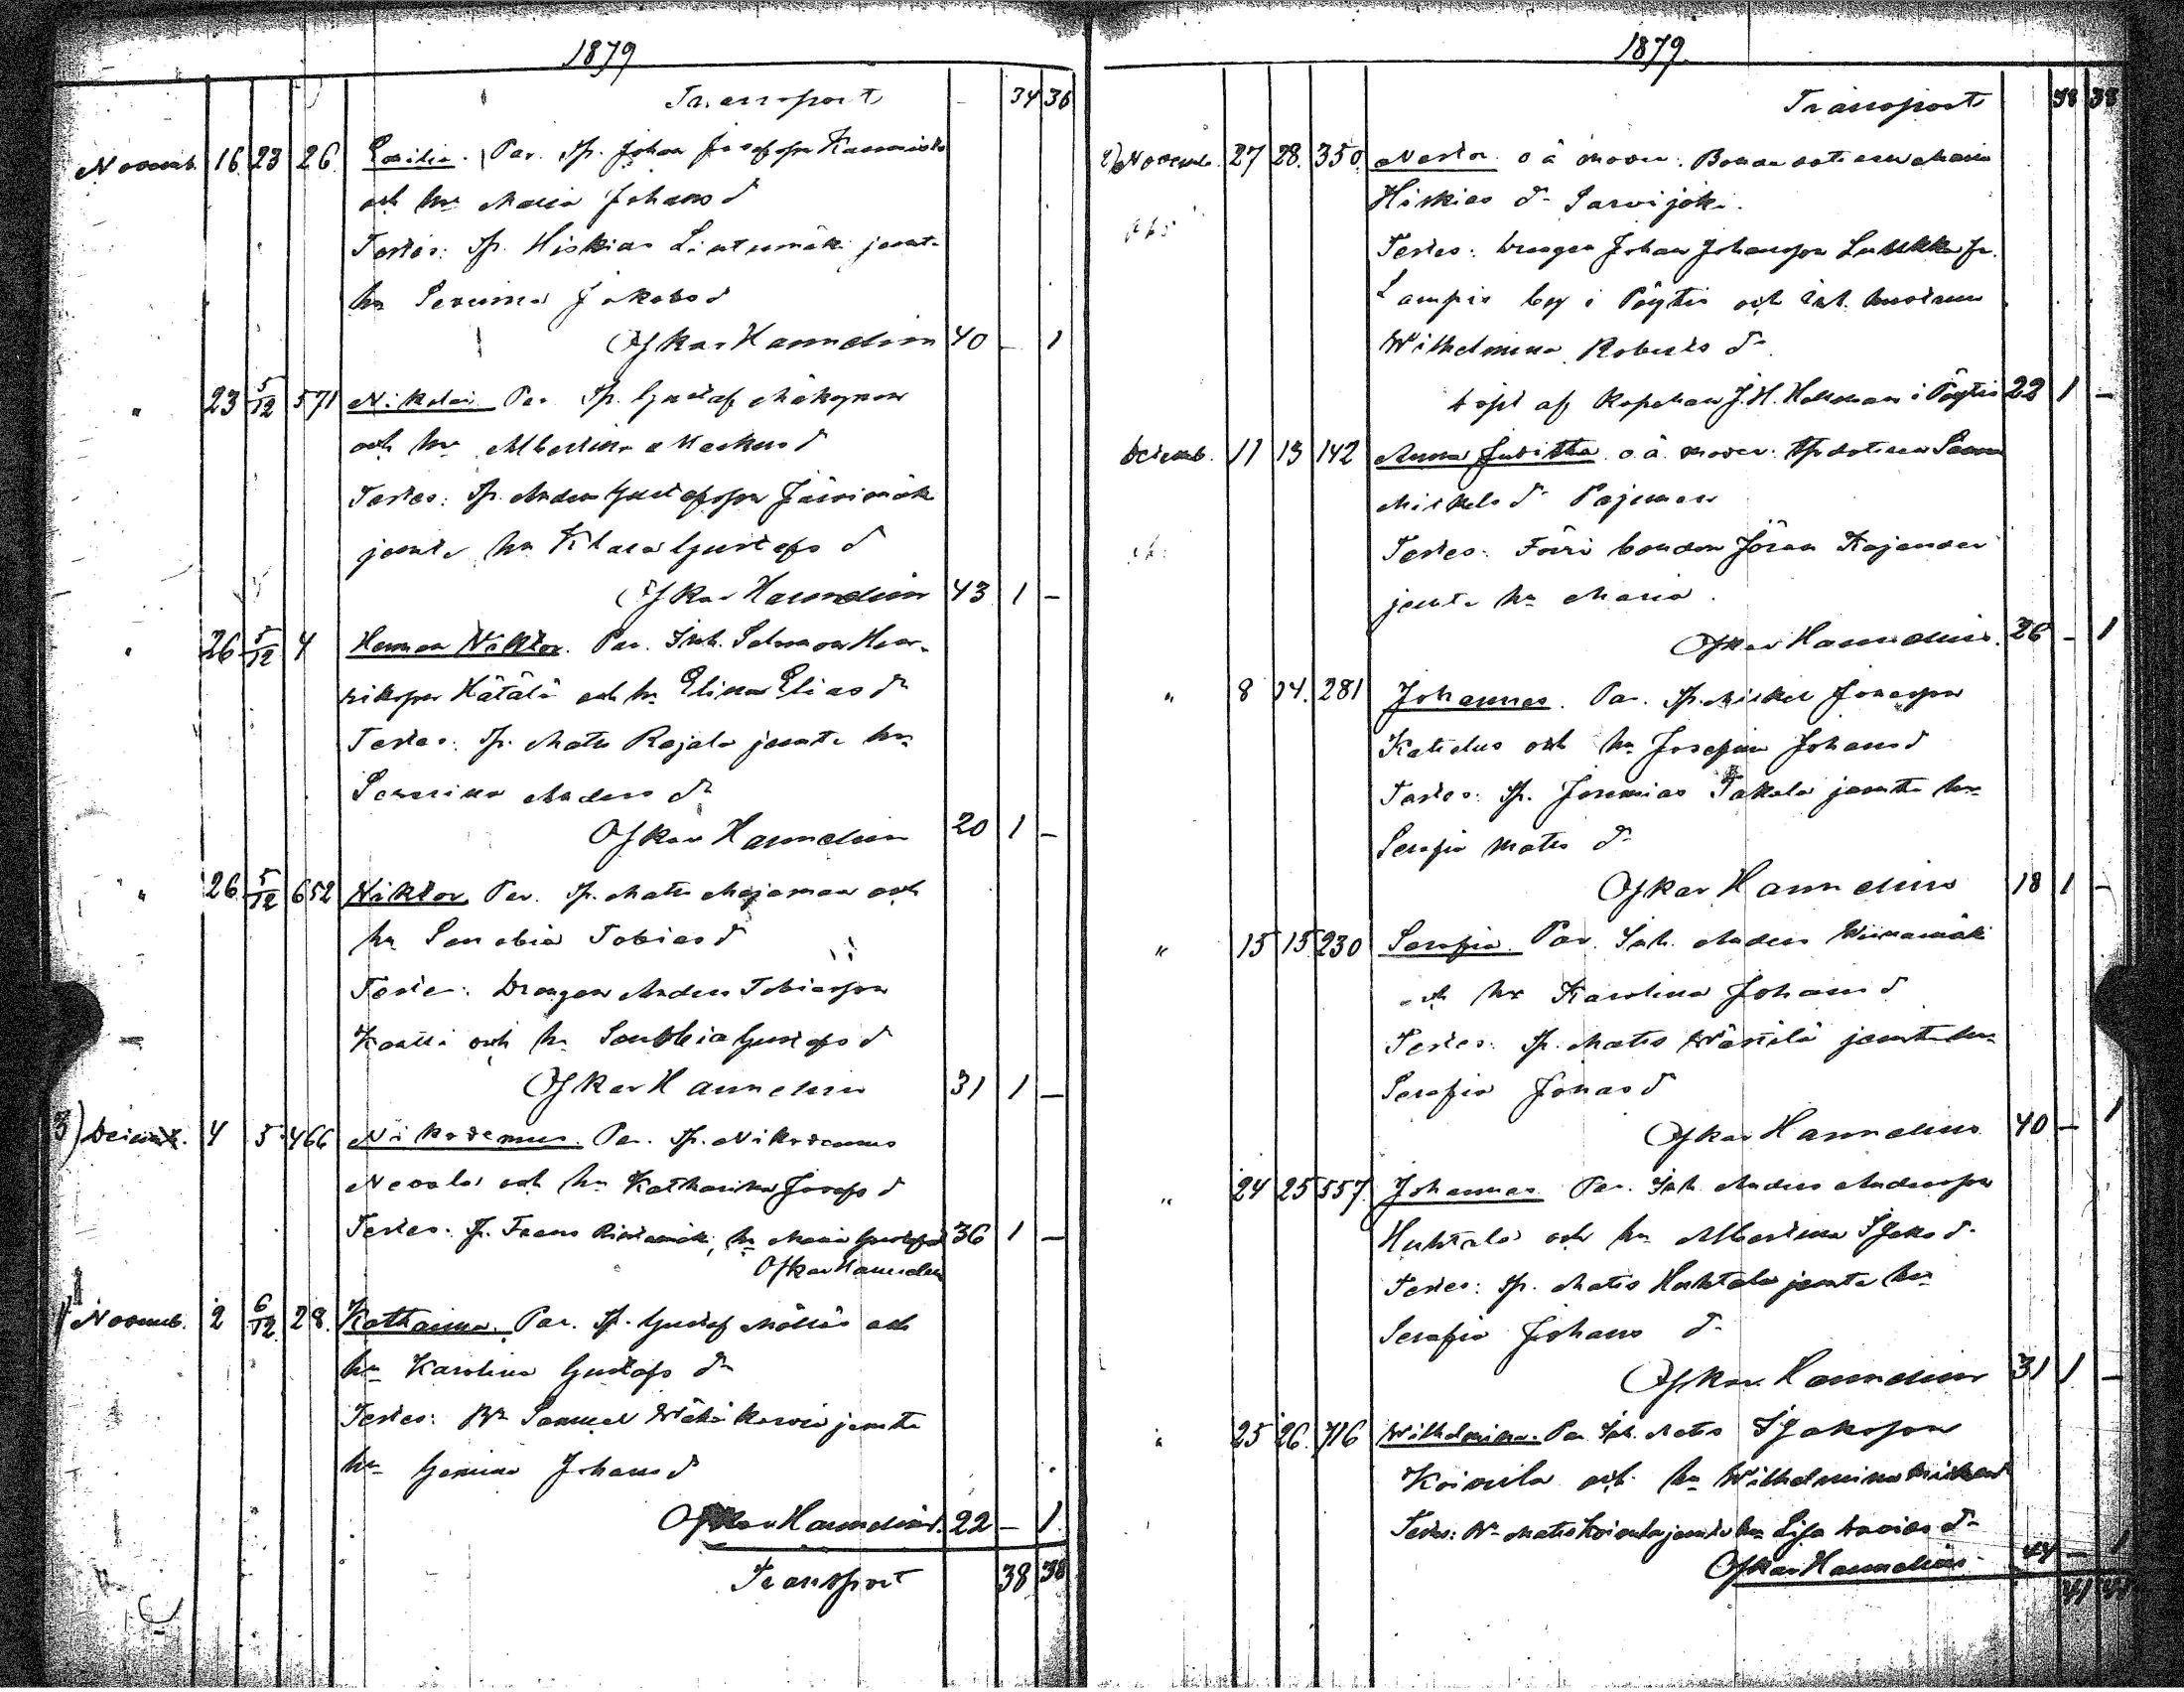 1879
Transport 34 36
Novemb. 16 23 26 Par. Sp. Johan
och hu Maria Johans d
Testes: Sp. Hiskias Lintumäki jemte
hu Serima Jakobs d
Oskar Hamnelin 40 – 1
" 23 5/12 571 Nikolai Par. Sp. Gustaf
och hu Albertina Markus d
Testes: Sp. Anders Gustafsson Järvimäki
jemte hu Klara Gustafs d
Oskar Hamnelin 43 1 –
" 26 5/12 4 Herman Viktor. Par. Inh. Salomon Hen-
riksson Hätälä och hu Elina Elias dr
Testes: Sp. Mats Rajala jemte hu
Severina Anders dr
Oskar Hamnelin 20 1 –
" 26 5/12 652 Viktor Par. Sp. Mats Majaman och
hu Tobias d
Testes: Drengen Anders Tobiasson
och hu Gustafs d
Oskar Hamnelin 31 1 –
3) Decemb. 4 5 466 Nikodemus. Par. Sp. Nikodemus
Nevala och hu Katharina Josefs d
Testes: Sp. Frans hu Maria Gustafs d 36 1 –
Oskar Hamnelin
1) Novemb. 2 6/12 28. Katharina. Par. Sp. Gustaf och
hu Karolina Gustafs dr
Testes: Samuel jemte
hu Johans d
Oskar Hamnelin 22 – 1
Transport 38 38
1879.
Transport 38 38
2) Novemb. 27 28. 350 Nestor o ä moder: Bonde dottren Maria
Hiskias dr Sarvijoki.
Testes: Drengen Johan Johansson fr.
Lampis by i Pöytis och Inh. hustrun
Wilhelmina Roberts dr
döpt af Kapellan J. H. Hellman i Pöytis 22 1 –
Decemb. 11 13 142 Anna Juditha o.ä. moder: Sp dottren Sanna
Mickels dr Pajuman
Testes: Förre bonden Jöran Kajander
jemte hu Maria.
Oskar Hamnelin. 26 – 1
" 8 14. 281 Johannes. Par. Sp. Mickel Jonasson
och hu Josefina Johans d
Testes: Sp. Jeremias Takala jemte hu
Serafia Mats dr
Oskar Hamnelin 18 1 –
" 15 15 230 Serafia. Par. Inh. Anders
och hu Karolina Johans d
Testes: Sp. Mats Wästilä jemte hu
Serafia Jonas d
Oskar Hamnelin 40 – 1
" 24 25 557 Johannes Par. Inh. Anders Andersson
Huhtala och hu Albertina Isaks dr
Testes: Sp. Mats Huhtala jemte hu
Serafia Johans dr
Oskar Hamnelin 31 1 –
" 25 26. 716 Wilhelmina. Par. Inh. Mats Isaksson
Koivula och hu Wilhelmina
Testes: Mats Koivula jemte hu Lisa Davids dr
Oskar Hamnelin 44 – 1
41 41